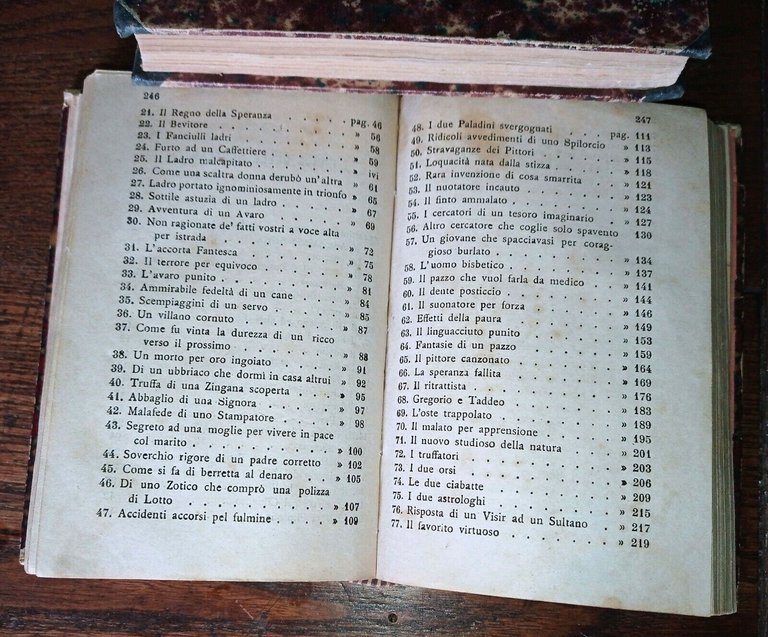 246
21. Il Regno della Speranza pag. 46
22. Il Bevitore . . . . . . . . . » 56
23. I Fanciulli ladri . . . . . . . » 58
24. Furto ad un Caffettiere . . . . . » 59
25. Il Ladro malcapitato . . . . . . » ivi
26. Come una scaltra donna derubò un'altra » 61
27. Ladro portato ignominiosamente in trionfo » 65
28. Sottile astuzia di un ladro . . . . » 67
29. Avventura di un Avaro . . . . . » 69
30. Non ragionate de' fatti vostri a voce alta
per istrada . . . . . . . . » 72
31. L'accorta Fantesca . . . . . . » 75
32. Il terrore per equivoco . . . . . » 78
33. L'avaro punito . . . . . . . » 81
34. Ammirabile fedeltà di un cane . . . » 84
35. Scempiaggini di un servo . . . . . » 85
36. Un villano cornuto . . . . . . » 87
37. Come fu vinta la durezza di un ricco
verso il prossimo . . . . . . » 88
38. Un morto per oro ingoiato . . . . » 91
39. Di un ubbriaco che dormì in casa altrui » 92
40. Truffa di una Zingana scoperta . . . » 95
41. Abbaglio di una Signora . . . . . » 97
42. Malafede di uno Stampatore . . . . » 98
43. Segreto ad una moglie per vivere in pace
col marito . . . . . . . . » 100
44. Soverchio rigore di un padre corretto » 102
45. Come si fa di berretta al denaro . . » 105
46. Di uno Zotico che comprò una polizza
di Lotto . . . . . . . . . » 107
47. Accidenti accorsi pel fulmine . . . . » 109
247
48. I due Paladini svergognati . . . pag. 111
49. Ridicoli avvedimenti di uno Spilorcio » 113
50. Stravaganze dei Pittori . . . . . » 115
51. Loquacità nata dalla stizza . . . . » 118
52. Rara invenzione di cosa smarrita . . » 121
53. Il nuotatore incauto . . . . . . » 123
54. Il finto ammalato . . . . . . . » 124
55. I cercatori di un tesoro imaginario . » 127
56. Altro cercatore che coglie solo spavento » 130
57. Un giovane che spacciavasi per corag-
gioso burlato . . . . . . . » 134
58. L'uomo bisbetico . . . . . . . » 137
59. Il pazzo che vuol farla da medico . . » 141
60. Il dente posticcio . . . . . . . » 144
61. Il suonatore per forza . . . . . » 146
62. Effetti della paura . . . . . . . » 149
63. Il linguacciuto punito . . . . . . » 153
64. Fantasie di un pazzo . . . . . . » 159
65. Il pittore canzonato . . . . . . » 164
66. La speranza fallita . . . . . . . » 169
67. Il ritrattista . . . . . . . . . » 176
68. Gregorio e Taddeo . . . . . . . » 183
69. L'oste trappolato . . . . . . . » 189
70. Il malato per apprensione . . . . . » 195
71. Il nuovo studioso della natura . . . » 201
72. I truffatori . . . . . . . . . » 203
73. I due orsi . . . . . . . . . . » 206
74. Le due ciabatte . . . . . . . . » 209
75. I due astrologhi . . . . . . . . » 215
76. Risposta di un Visir ad un Sultano . » 217
77. Il favorito virtuoso . . . . . . . » 219